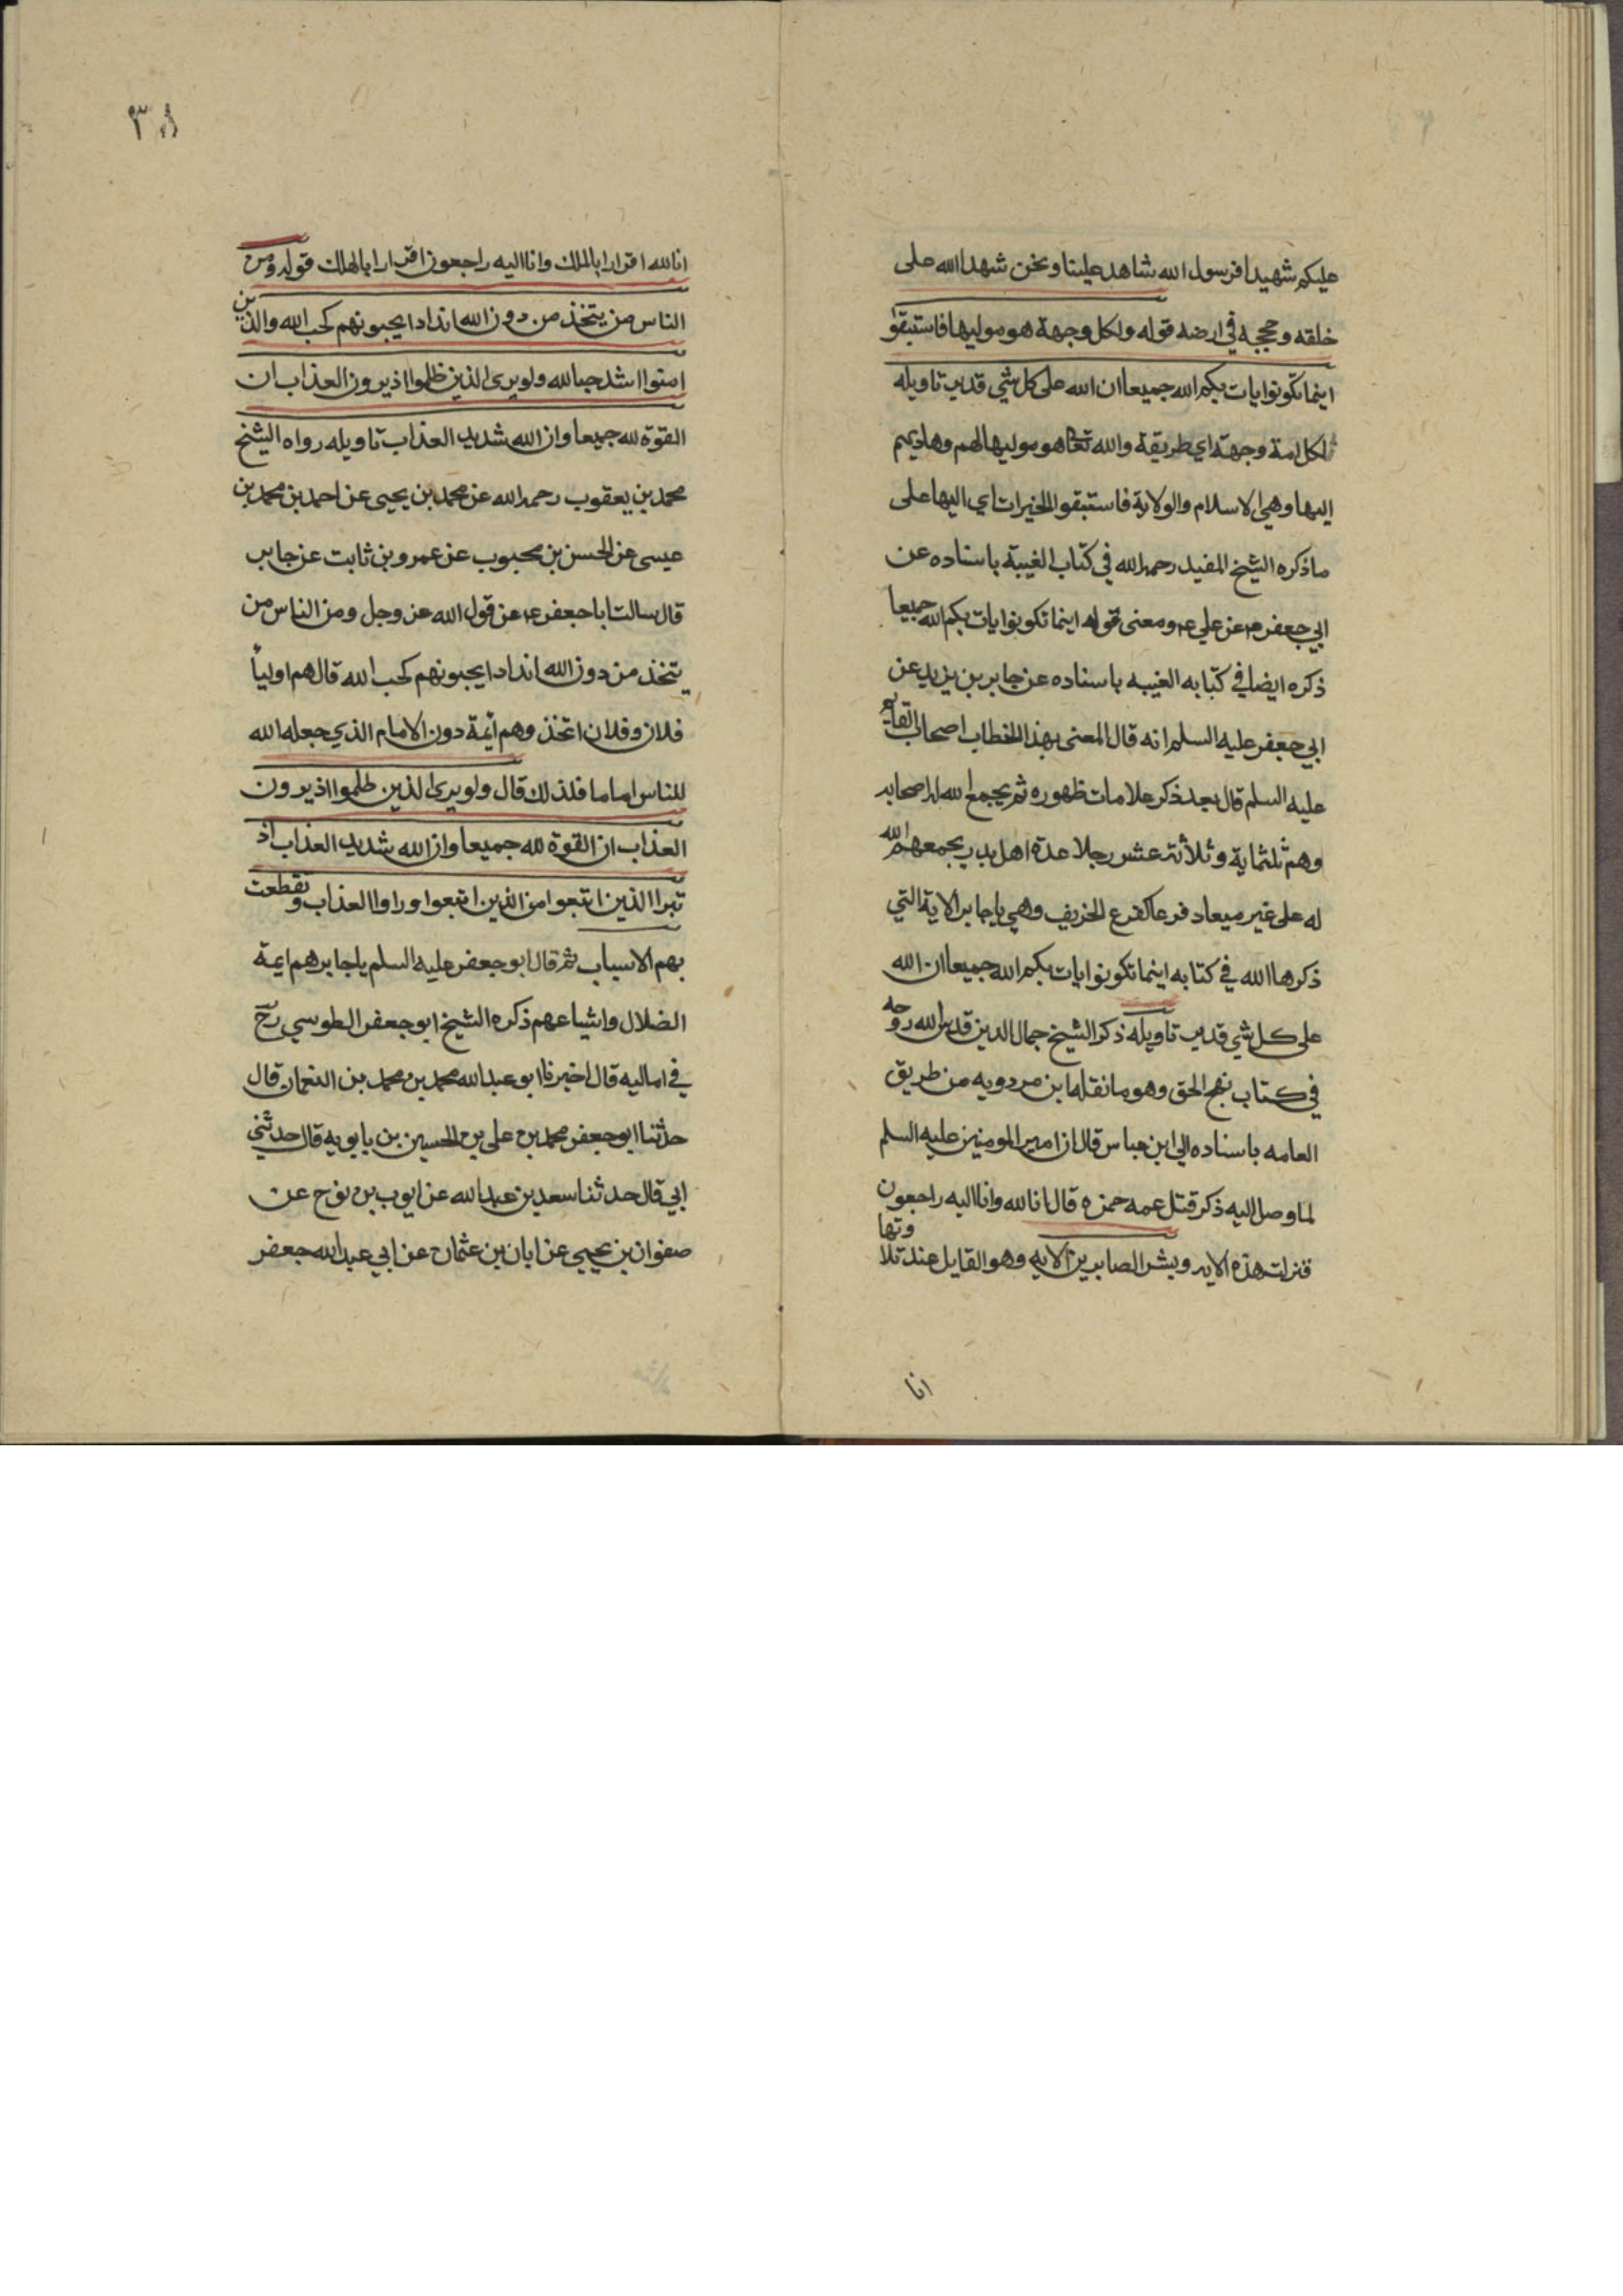 عليكم شهيدا فرسول الله شاهد علينا ونحن شهدا الله على
خلقه وحججه في ارضه قوله ولكل وجهة هو موليها فاستبقوا
اينما تكونوا يات بكم الله جميعا ان الله على كل شي قدير تاويله
لكل امة وجهة اي طريقة والله تعالى هو موليها لهم وهاديهم
اليها وهي الاسلام والولاية فاستبقوا الخيرات اي اليها على
ما ذكره الشيخ المفيد رحمه الله في كتاب الغيبة باسناده عن
ابي جعفر ع عن علي ع ومعنى قوله اينما تكونوا يات بكم الله جميعا
ذكره ايضا في كتابه الغيبه باسناده عن جابر بن يزيد عن
ابي جعفر عليه السلم انه قال المعنى بهذا الخطاب اصحاب القايم
عليه السلم قال بعد ذكر علامات ظهوره ثم يجمع الله له اصحابه
وهم ثلثماية وثلاثة عشر رجلا عدة اهل بدر يجمعهم الله
له على غير ميعاد قزعا كقزع الخريف وهي يا جابر الاية التي
ذكرها الله في كتابه اينما تكونوا يات بكم الله جميعا ان الله
على كل شي قدير تاويله ذكر الشيخ جمال الدين قدس الله روحه
في كتاب نهج الحق وهو ما نقله ابن مردويه من طريق
العامه باسناده الي ابن عباس قال ان امير المومنين عليه السلم
لما وصل اليه ذكر قتل عمه حمزه قال انا لله وانا اليه راجعون
فنزلت هذه الايه وبشر الصابرين الايه وهو القايل عند تلاوتها
انا
٣٨
انا لله اقرارا بالملك وانا اليه راجعون اقرارا بالهلك قوله ومن
الناس من يتخذ من دون الله اندادا يحبونهم كحب الله والذين
امنوا اشد حبا لله ولو يرى الذين ظلموا اذ يرون العذاب ان
القوة لله جميعا وان الله شديد العذاب تاويله رواه الشيخ
محمد بن يعقوب رحمه الله عن محمد بن يحيى عن احمد بن محمد بن
عيسى عن الحسن بن محبوب عن عمرو بن ثابت عن جابر
قال سالت ابا جعفر ع عن قول الله عز وجل ومن الناس من
يتخذ من دون الله اندادا يحبونهم كحب الله قال هم اوليأ
فلان وفلان اتخذوهم ائمة دون الامام الذي جعله الله
للناس اماما فلذلك قال ولو يرى الذين ظلموا اذ يرون
العذاب ان القوة لله جميعا وان الله شديد العذاب اذ
تبرا الذين اتبعوا من الذين اتبعوا وراوا العذاب وتقطعت
بهم الاسباب ثم قال ابو جعفر عليه السلم يا جابر هم ايمة
الضلال واشياعهم ذكره الشيخ ابو جعفر الطوسي رح
في اماليه قال اخبرنا ابو عبد الله محمد بن محمد بن النعمان قال
حدثنا ابو جعفر محمد بن علي بن الحسين بن بابويه قال حدثني
ابي قال حدثنا سعد بن عبد الله عن ايوب بن نوح عن
صفوان بن يحيى عن ابان بن عثمان عن ابي عبد الله جعفر